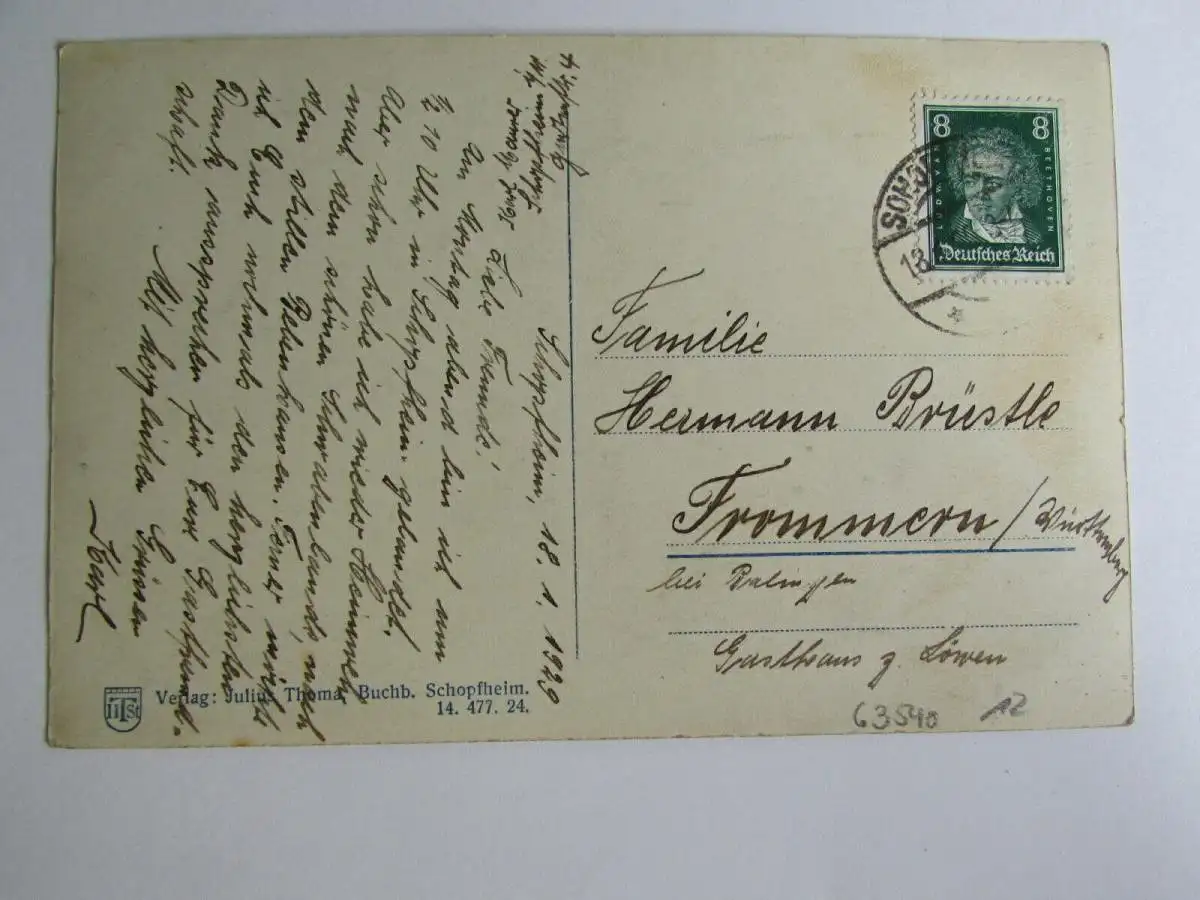 Schopfheim, 18. 1. 1929
Liebe Freunde!
Am Montag abend bin ich um
½ 10 Uhr in Schopfheim gelandet.
Aber schon habe ich wieder Heimweh
nach dem schönen Schwabenlande, nach
dem stillen Ferner möcht
ich Euch nochmals den herzlichsten
Dank aussprechen für Eure Gastfreund-
schaft.
Mit herzlichen Grüssen
Karl
8 8
LUDW. VAN BEETHOVEN
Deutsches Reich
SCHOPF
18.
Familie
Hermann Brüstle
Frommern / Württemberg
bei Balingen
Gasthaus z. Löwen
Verlag: Julius Thoma, Buchb. Schopfheim.
14. 477. 24.
63540 12